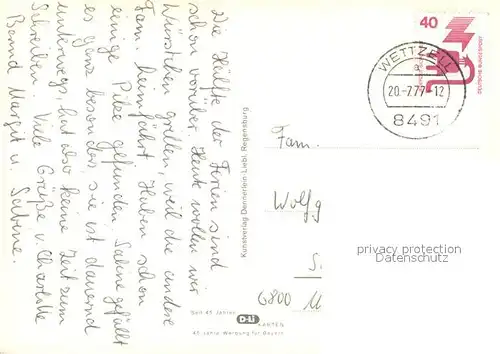 Die Hälfte der Ferien sind
schon vorüber. Heute wollen wir
Würstchen grillen, weil die andere
Fam. heimfährt. Haben schon
einige Pilze gefunden. Sabine gefällt
es ganz besonders, sie ist dauernd
unterwegs, hat also keine Zeit zum
Schreiben. Viele Grüße v. Charlotte
Bernd Margit u. Sabine.
Kunstverlag Dennerlein-Liebl, Regensburg
Seit 45 Jahren
D-Li
KARTEN
45 Jahre Werbung für Bayern
40
DEUTSCHE BUNDESPOST
WETTZELL
a
20.-7.77-12
8491
Fam.
Wolfg
privacy protection
Datenschutz
S
6800 M